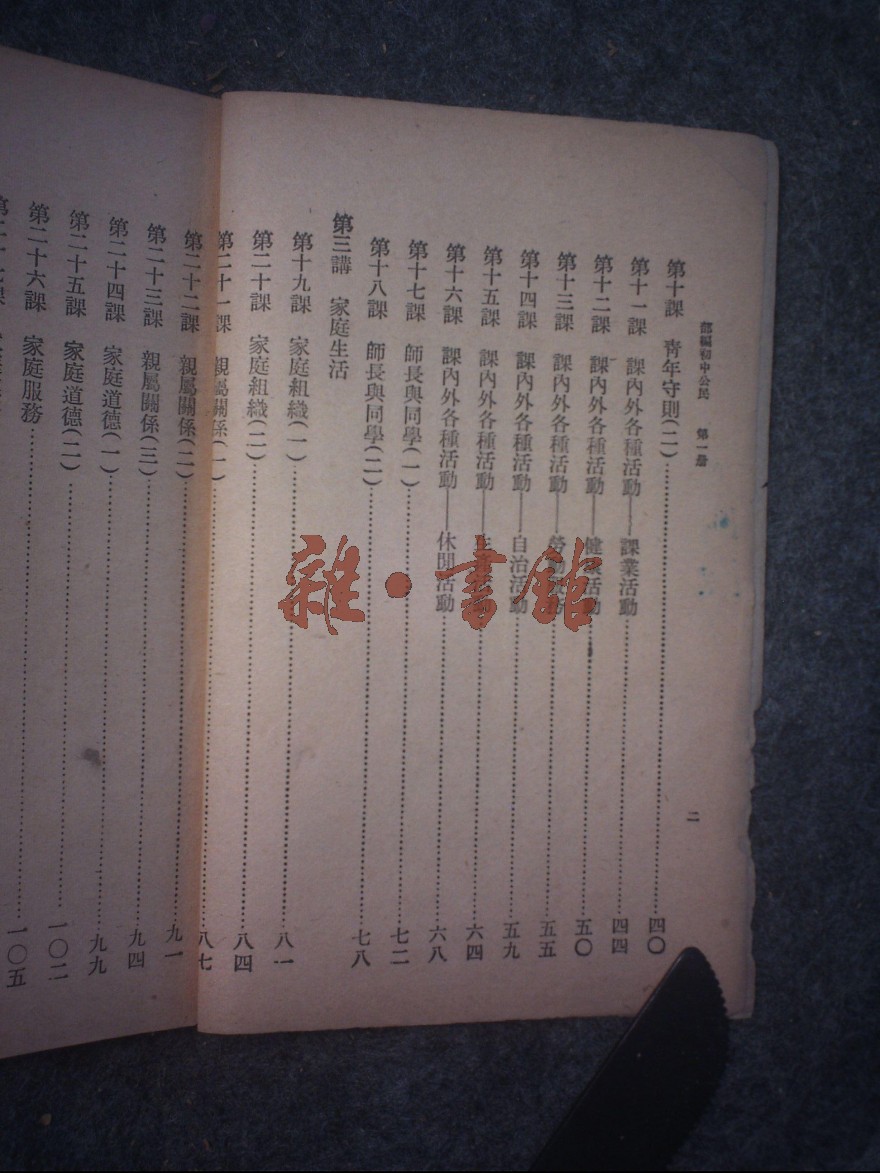 部編初中公民　第一册
二
第十課　青年守則(二)……四〇
第十一課　課內外各種活動——課業活動……四四
第十二課　課內外各種活動——健　活動……五〇
第十三課　課內外各種活動——勞……五五
第十四課　課內外各種活動——自治活動……五九
第十五課　課內外各種活動——……六四
第十六課　課內外各種活動——休閒活動……六八
第十七課　師長與同學(一)……七二
第十八課　師長與同學(二)……七八
第三講　家庭生活
第十九課　家庭組織(一)……八一
第二十課　家庭組織(二)……八四
第二十一課　親屬關係(一)……八七
第二十二課　親屬關係(二)……九一
第二十三課　親屬關係(三)……九四
第二十四課　家庭道德(一)……九九
第二十五課　家庭道德(二)……一〇二
第二十六課　家庭服務……一〇五
雜·書館